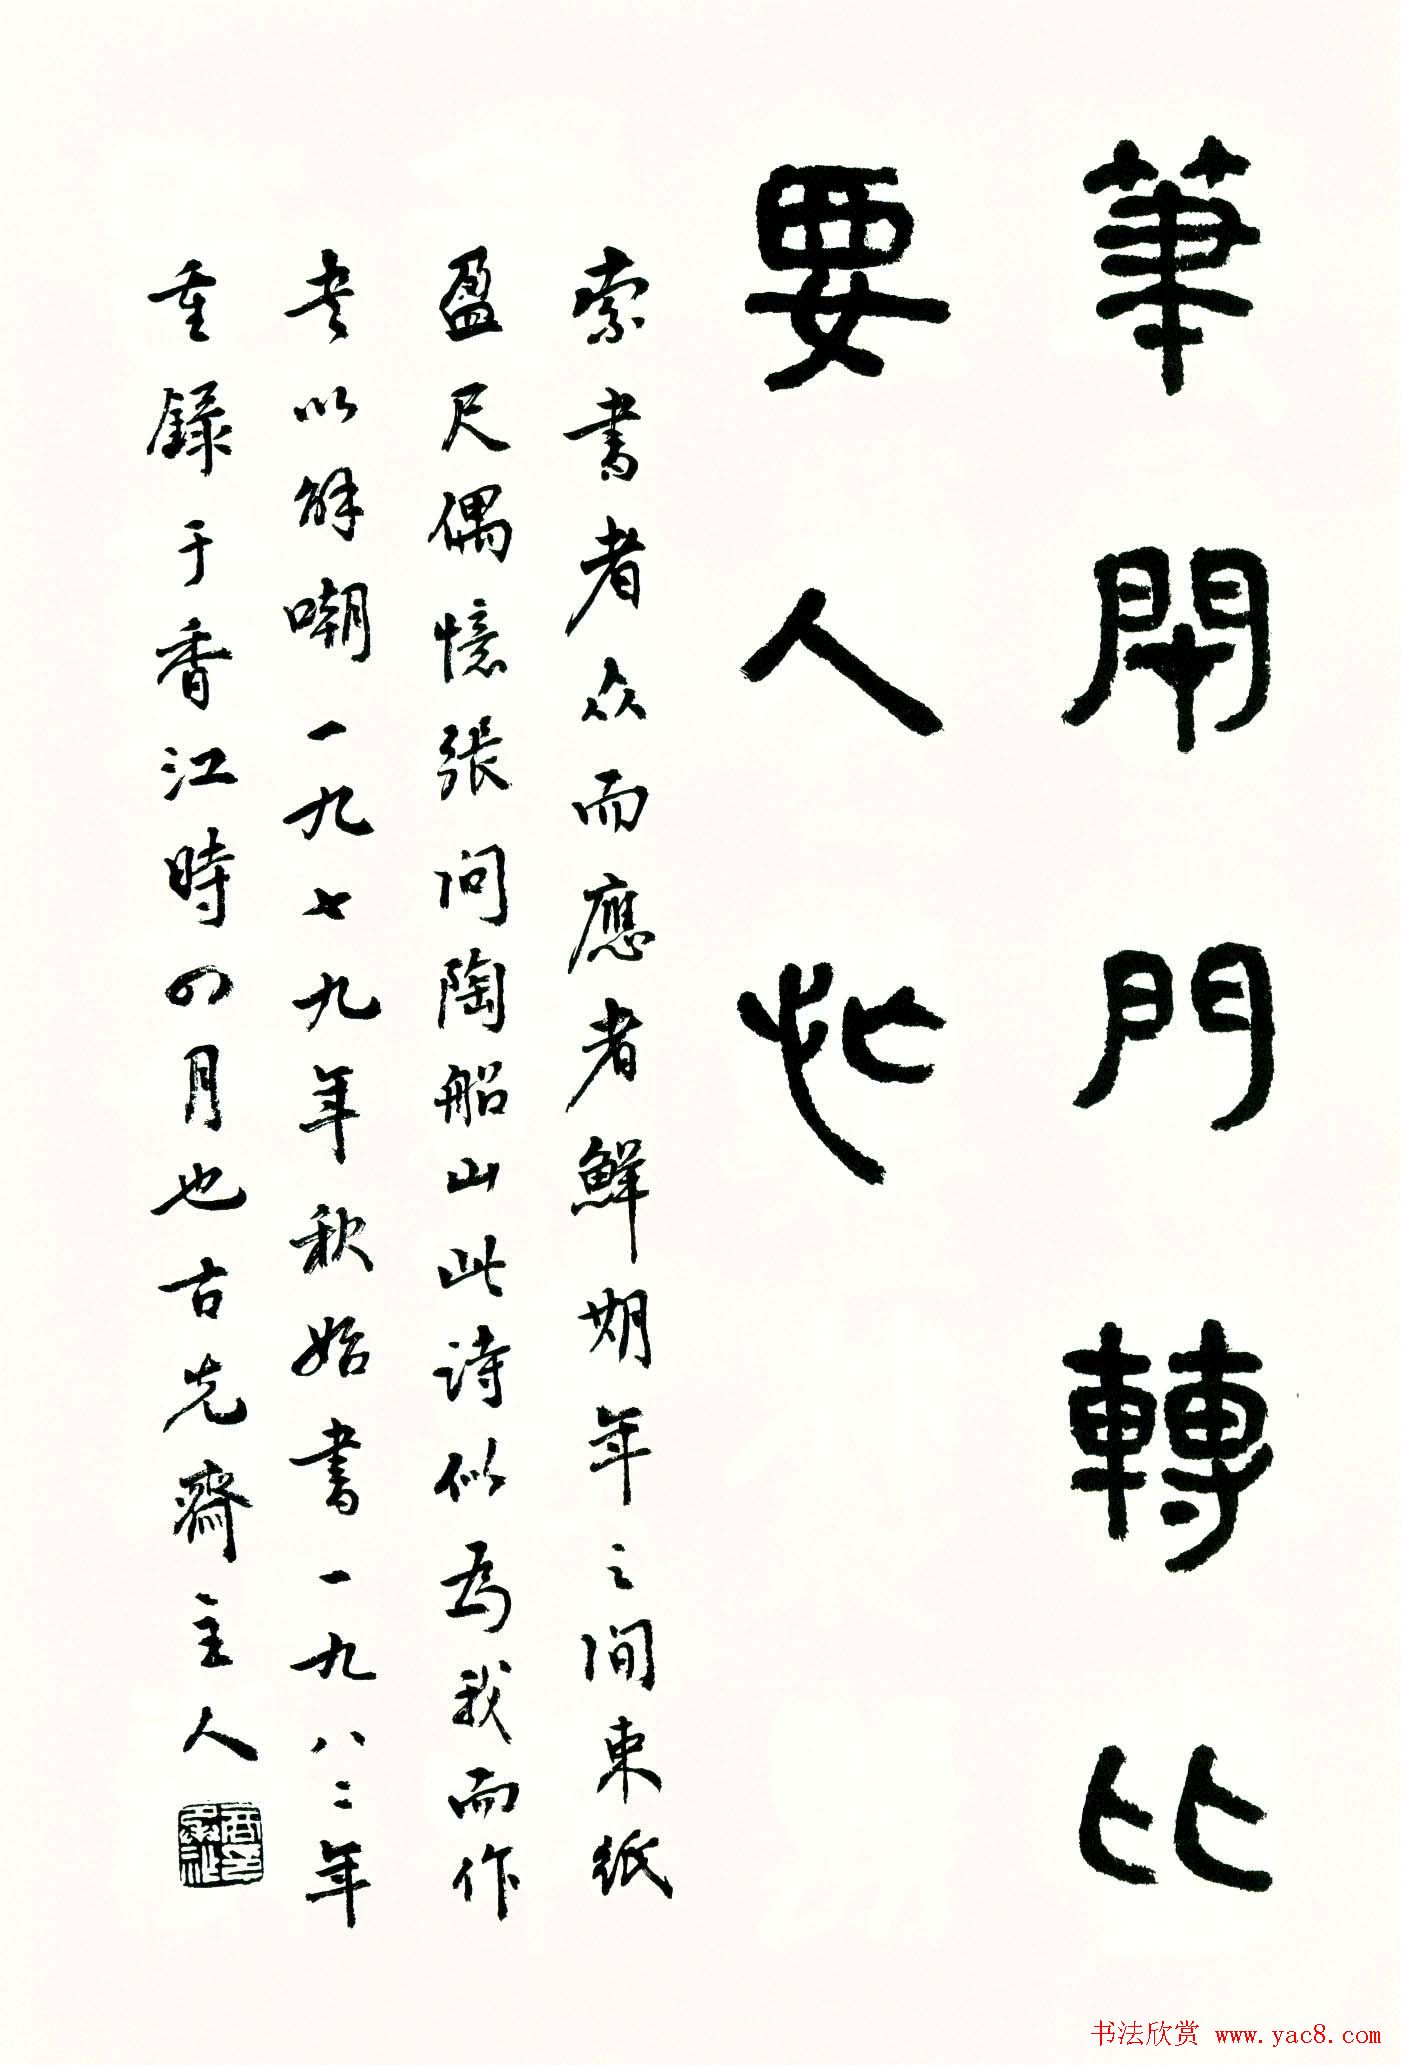 筆閉門轉比
要人忙
索書者众而應者鮮期年之间束紙
盈尺偶憶張问陶船山此诗似為我而作
书以解嘲一九七九年秋始書一九八二年
重録于香江時四月也古先齋主人
书法欣赏 www.yac8.com